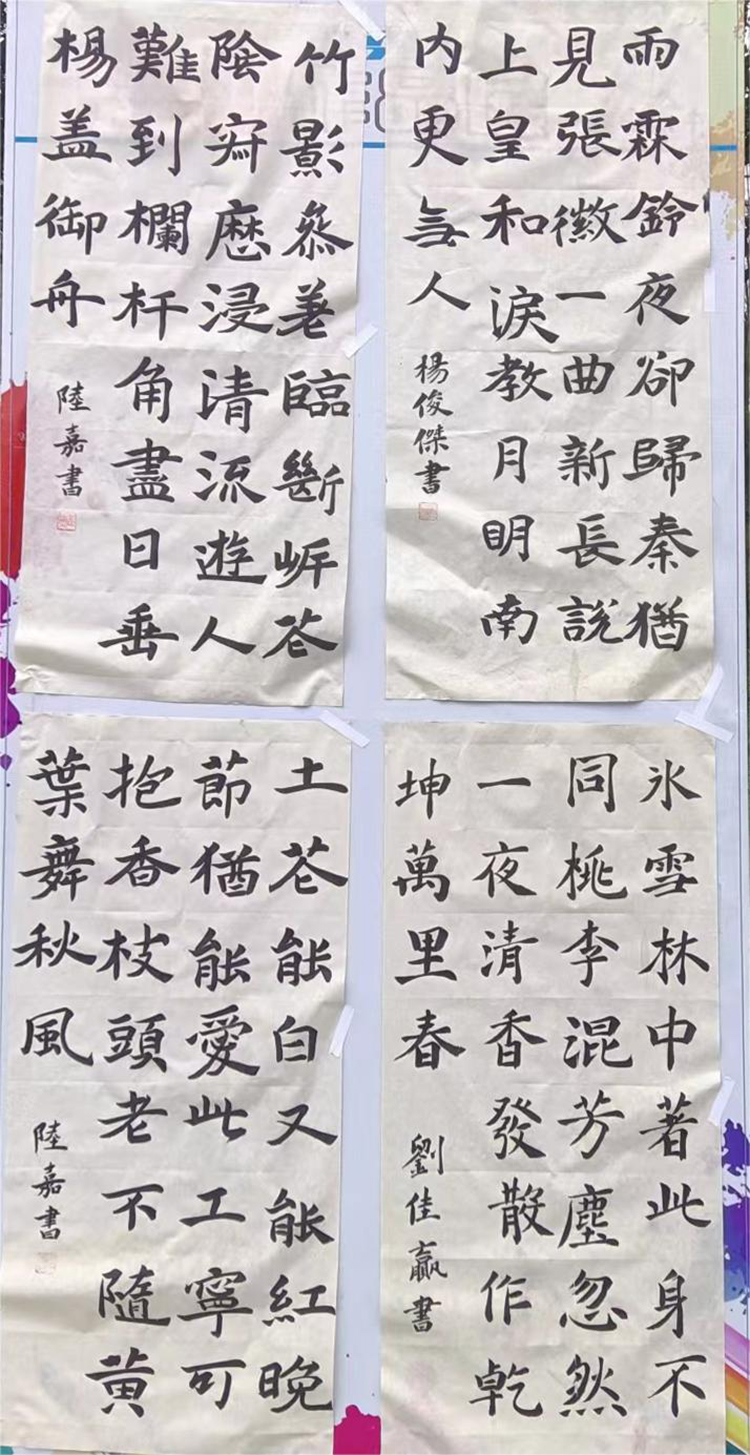 雨霖鈴夜卻歸秦猶
見張徽一曲新長說
上皇和淚教月明南
內更無人
楊俊傑書
竹影參差臨斷岸花
陰寂歷浸清流遊人
難到欄杆角盡日垂
楊盖御舟
陸嘉書
氷雪林中著此身不
同桃李混芳塵忽然
一夜清香發散作乾
坤萬里春
劉佳贏書
土花能白又能紅晚
節猶能愛此工寧可
抱香枝頭老不隨黄
葉舞秋風
陸嘉書